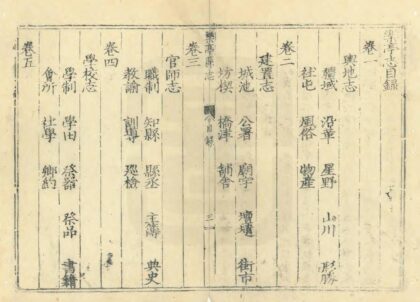 樂亭志目錄
卷一
輿地志
疆域 沿革 星野 山川 形勝
社屯 風俗 物產
卷二
建置志
城池 公署 廟宇 壇壝 街市
坊楔 橋津 舖舍
樂亭縣志 目錄
卷三
官師志
職制 知縣 縣丞 主簿 典史
教諭 訓導 巡檢
卷四
學校志
學制 學田 祭器 祭品 書籍
會所 社學 鄉約
卷五